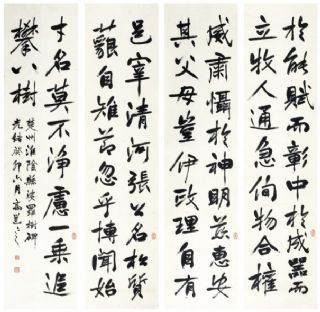 於能賦而彰中於成器而
立牧人通急徇物合權
威肅懾於神明茲惠安
其父母豈伊政理自有
邑宰清河張公名松質
自雅節忽乎博聞始
才名莫不淨慮一乘追
攀八樹
楚州淮陰縣娑羅樹碑
光緒癸卯六月高邕之